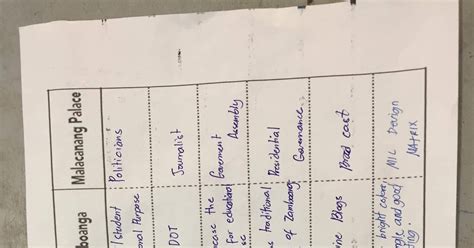 Malacanang Palace
Politicians
Journalist
Goverment
Assembly
Presidential
Governance.
Broad cast
MIL Design
MATRIX
boanga
/ student
onal Purpose
DOT
case the
For education
se
traditional
of Zamboang
ine Blogs
bright colors
and good
ting.